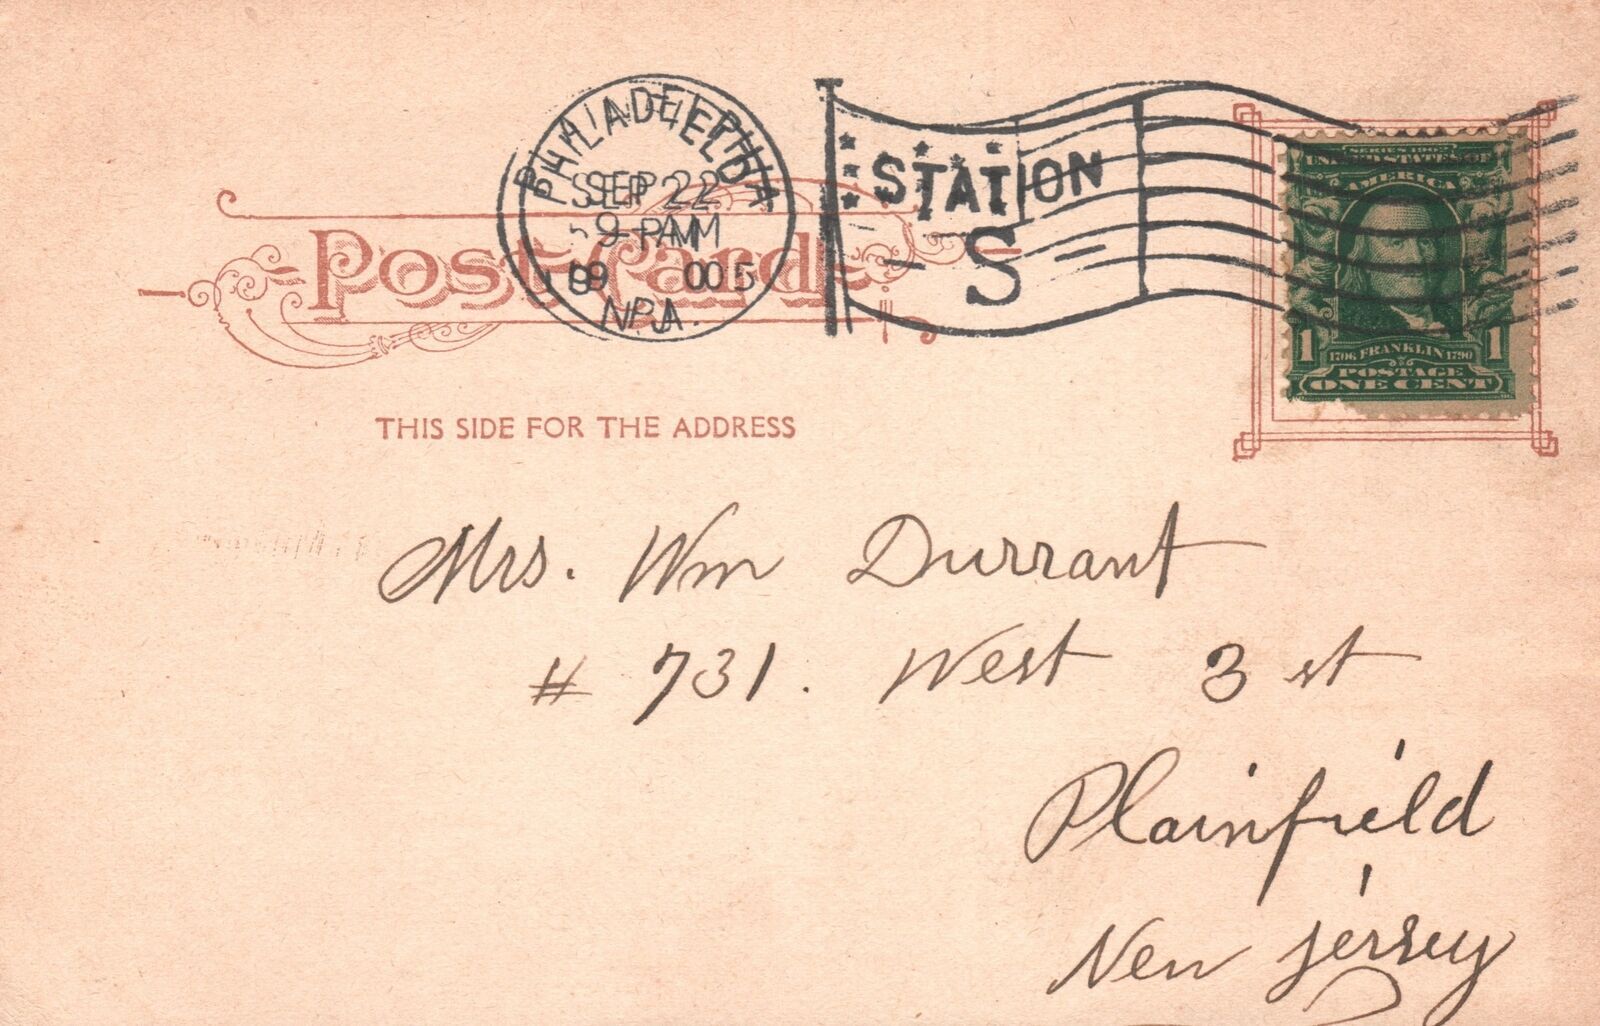 PHILADELPHIA
SEP 22
STATION
S
Post Card
SERIES 1902
UNITED STATES OF
AMERICA
1 1706 FRANKLIN 1790 1
POSTAGE
ONE CENT
THIS SIDE FOR THE ADDRESS
Mrs. Wm Durrant
# 731. West 3 st
Plainfield
New Jersey